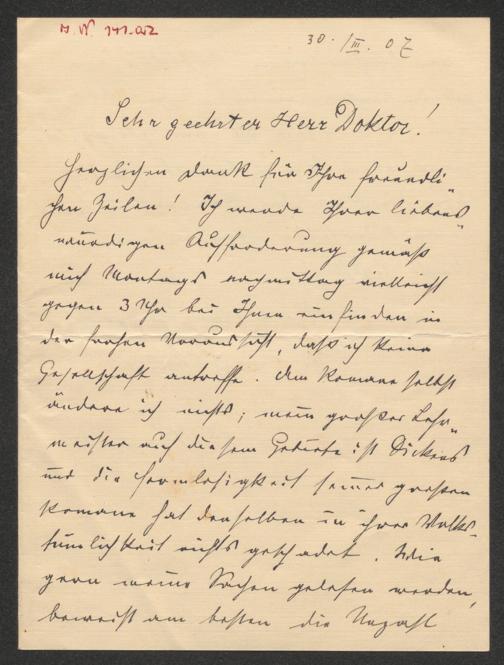 30. III. 07
Sehr geehrter Herr Doktor!
Herzlichen Dank für Ihre freundli„
chen Zeilen! Ich werde Ihrer liebens„
würdigen Aufforderung gemäß
mich Montags nachmittag vielleicht
gegen 3 Uhr bei Ihnen einfinden in
der frohen Voraussicht, daß ich keine
Gesellschaft antreffe. Am Romane selbst
ändere ich nichts; mein großer Lehr„
meister auf diesem Gebiete ist Dickens
und die Formlosigkeit seiner großen
Romane hat denselben in ihrer Volks„
tümlichkeit nichts geschadet. Wie
gern meine Sachen gelesen werden,
beweist am besten die Unzahl